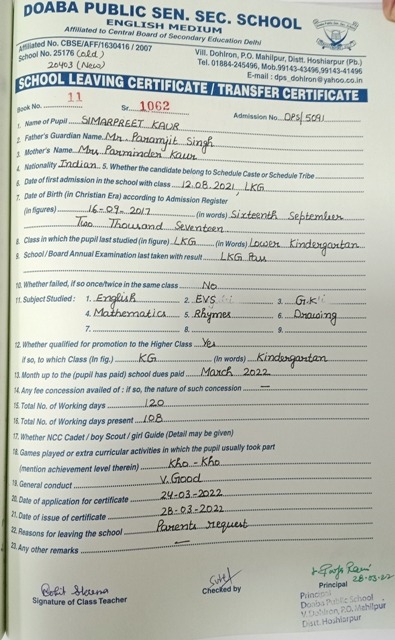 DOABA PUBLIC SEN. SEC. SCHOOL
ENGLISH MEDIUM
Affiliated to Central Board of Secondary Education Delhi
Affiliated No. CBSE/AFF/1630416 / 2007
School No. 25176 (old)
20403 (New)
Vill. Dohlron, P.O. Mahilpur, Distt. Hoshiarpur (Pb.)
Tel. 01884-245496, Mob.99143-43496,99143-41496
E-mail : dps_dohlron@yahoo.co.in
SCHOOL LEAVING CERTIFICATE / TRANSFER CERTIFICATE
Book No. 11 Sr. 1062 Admission No. DPS/5091
1. Name of Pupil SIMARPREET KAUR
2. Father's Guardian Name Mr. Paramjit Singh
3. Mother's Name Mrs Parminder Kaur
4. Nationality Indian 5. Whether the candidate belong to Schedule Caste or Schedule Tribe
6. Date of first admission in the school with class 12.08.2021, LKG
7. Date of Birth (in Christian Era) according to Admission Register
(in figures) 16-09-2017 (in words) Sixteenth September
Two Thousand Seventeen
8. Class in which the pupil last studied (in figure) LKG (in Words) Lower Kindergartan
9. School / Board Annual Examination last taken with result LKG Pass
10. Whether failed, if so once/twice in the same class No
11. Subject Studied : 1. English 2. EVS 3. G.K
4. Mathematics 5. Rhymes 6. Drawing
7. 8. 9.
12. Whether qualified for promotion to the Higher Class Yes
if so, to which Class (In fig.) KG (In words) Kindergartan
13. Month up to the (pupil has paid) school dues paid March 2022
14. Any fee concession availed of : if so, the nature of such concession —
15. Total No. of Working days 120
16. Total No. of Working days present 108
17. Whether NCC Cadet / boy Scout / girl Guide (Detail may be given)
18. Games played or extra curricular activities in which the pupil usually took part
(mention achievement level therein) Kho - Kho
19. General conduct V. Good
20. Date of application for certificate 24-03-2022
21. Date of issue of certificate 28-03-2022
22. Reasons for leaving the school Parents request
23. Any other remarks —
Signature of Class Teacher
Checked by
Principal 28-03-22
Principal
Doaba Public School
V. Dohlron, P.O. Mahilpur
Distt. Hoshiarpur